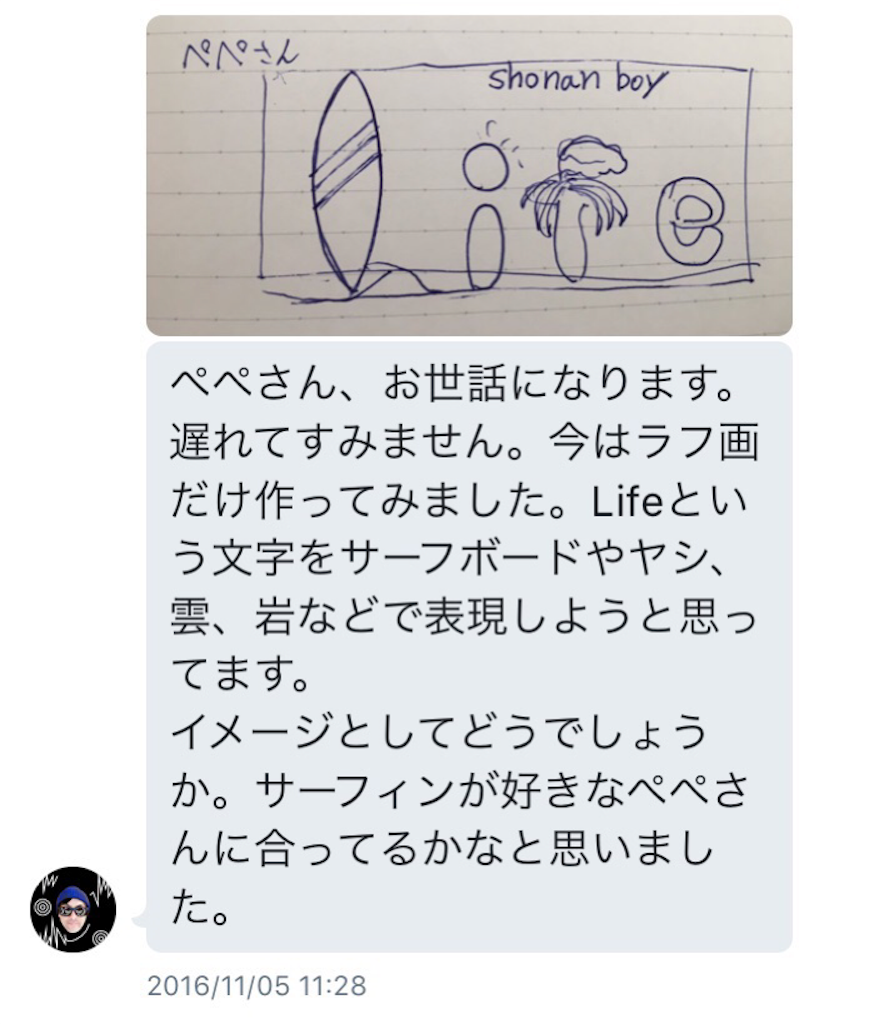 ペペさん
shonan boy
life
ペペさん、お世話になります。
遅れてすみません。今はラフ画
だけ作ってみました。Lifeとい
う文字をサーフボードやヤシ、
雲、岩などで表現しようと思っ
てます。
イメージとしてどうでしょう
か。サーフィンが好きなペペさ
んに合ってるかなと思いまし
た。
2016/11/05 11:28